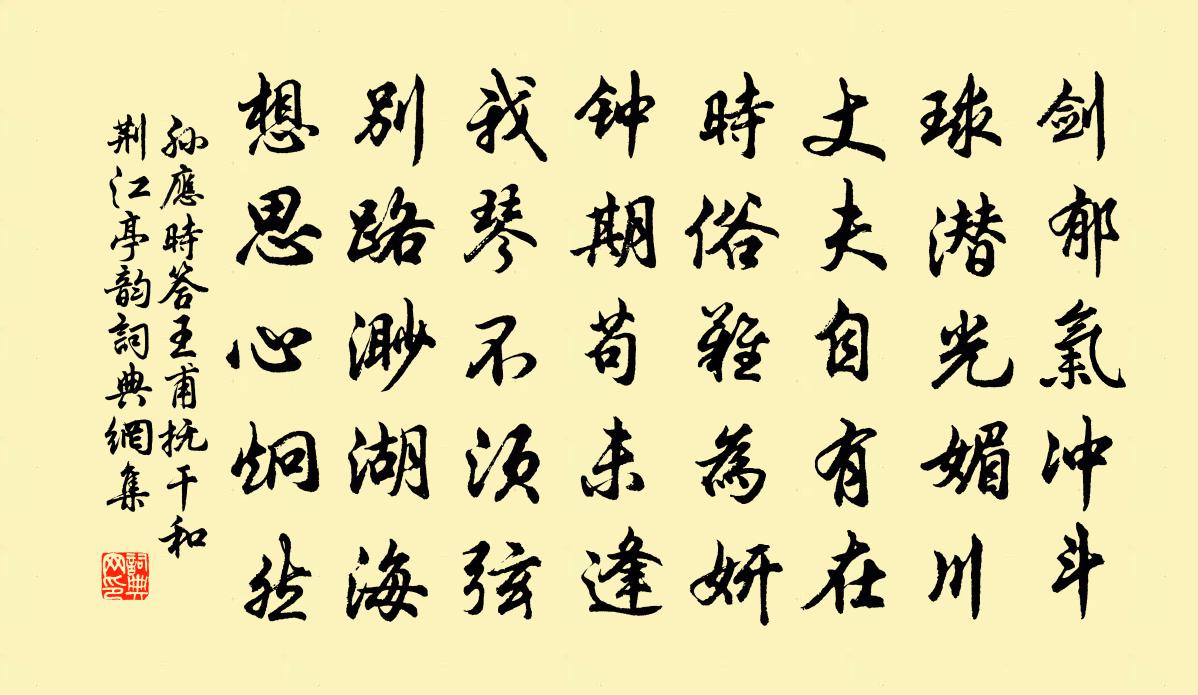 剑郁氣冲斗
球潜光媚川
丈夫自有在
時俗難為妍
钟期苟未逢
我琴不须弦
别路渺湖海
想思心炯然
孙應時答王甫抚干和
荆江亭韵詞典網集
詞典
网印